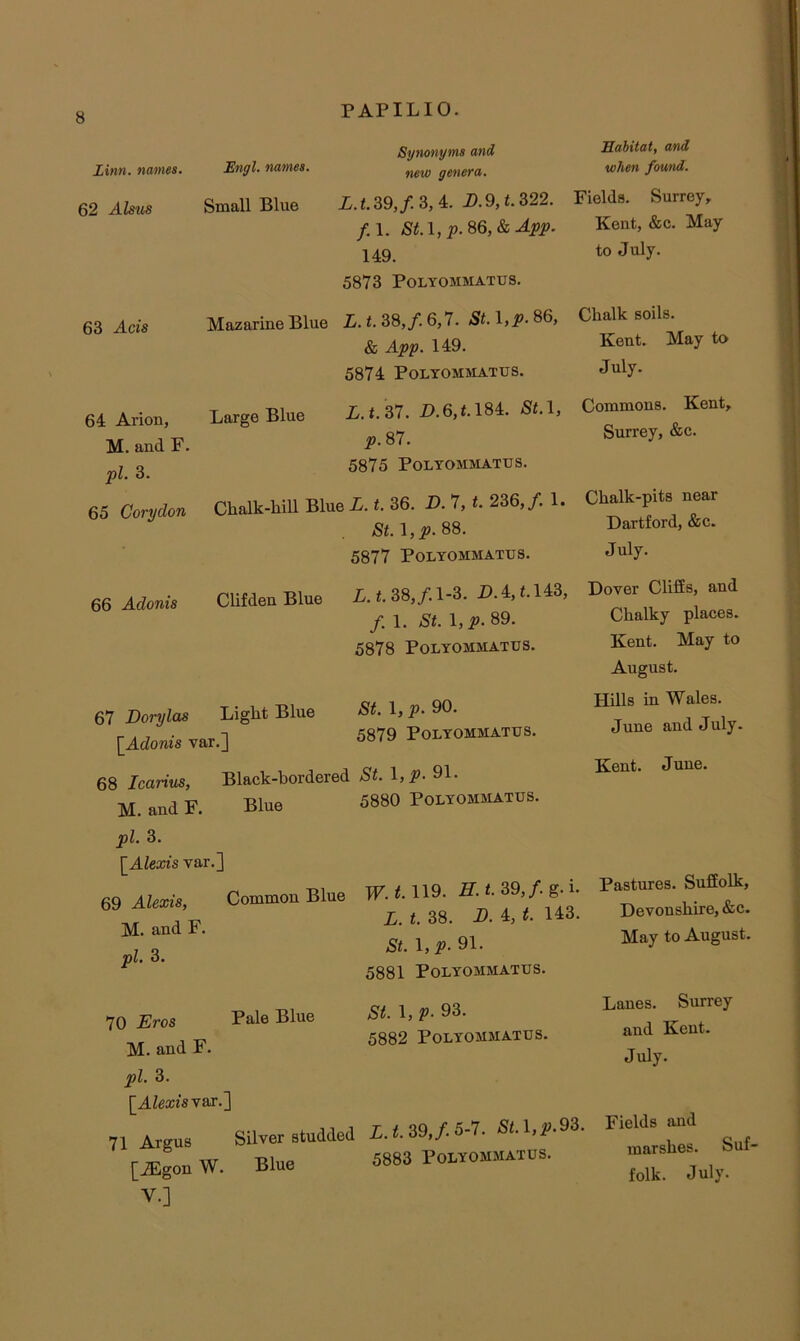 8
PAPILIO.
Linn. names. Engl. names. Synonyms and new genera. Habitat, and when found.
62 Alsus Small Blue L.t.39,f. 3, 4. D.9, t.322. Fields. Surrey,
f. 1. St.1, p. 86, & App. Kent, &c. May
149. to July.
5873 POLYOMMATUS.
63 Acis Mazarine Blue L. t. 38,f. 6,7. St. 1,p. 86, Chalk soils.
& App. 149. Kent. May to
5874 POLYOMMATUS. July.
64 Arion, Large Blue L.t.37. D.6,t.184. St.1, Commons. Kent,
M. and F. p.87. Surrey, &c.
pl. 3. 5875 POLYOMMATUS.
65 Corydon Chalk-hill Blue L. t. 36. D. 7, t. 236,f. 1. Chalk-pits near
St. 1,p. 88. Dartford, &c.
5877 POLYOMMATUS. July.
66 Adonis Clifden Blue L. t. 38,f.1-3. D.4,t.143, Dover Cliffs, and
f. 1. St. 1,p. 89. Chalky places.
5878 POLYOMMATUS. Kent. May to
August.
67 Dorylas Light Blue St. 1,p. 90. Hills in Wales.
[Adonis var.] 5879 POLYOMMATUS. June and July.
68 Icarius, Black-bordered St. 1,p. 91. Kent. June.
M. and F. Blue 5880 POLYOMMATUS.
pl. 3.
[Alexis var.]
69 Alexis, Common Blue W. t. 119. H. t. 39,f. g. i. Pastures. Suffolk,
M. and F. L. t. 38. D. 4, t. 143. Devonshire, &c.
pl. 3. St. 1,p. 91. May to August.
5881 POLYOMMATUS.
70 Eros Pale Blue St. 1, p. 93. Lanes. Surrey
M. and F. 5882 POLYOMMATUS. and Kent.
pl. 3. July.
[Alexis var.]
71 Argus Silver studded L.t.39,f.5-7. St.1,p.93. Fields and
[Ægon W. Blue 5883 POLYOMMATUS. marshes. Suf-
V.] folk. July.